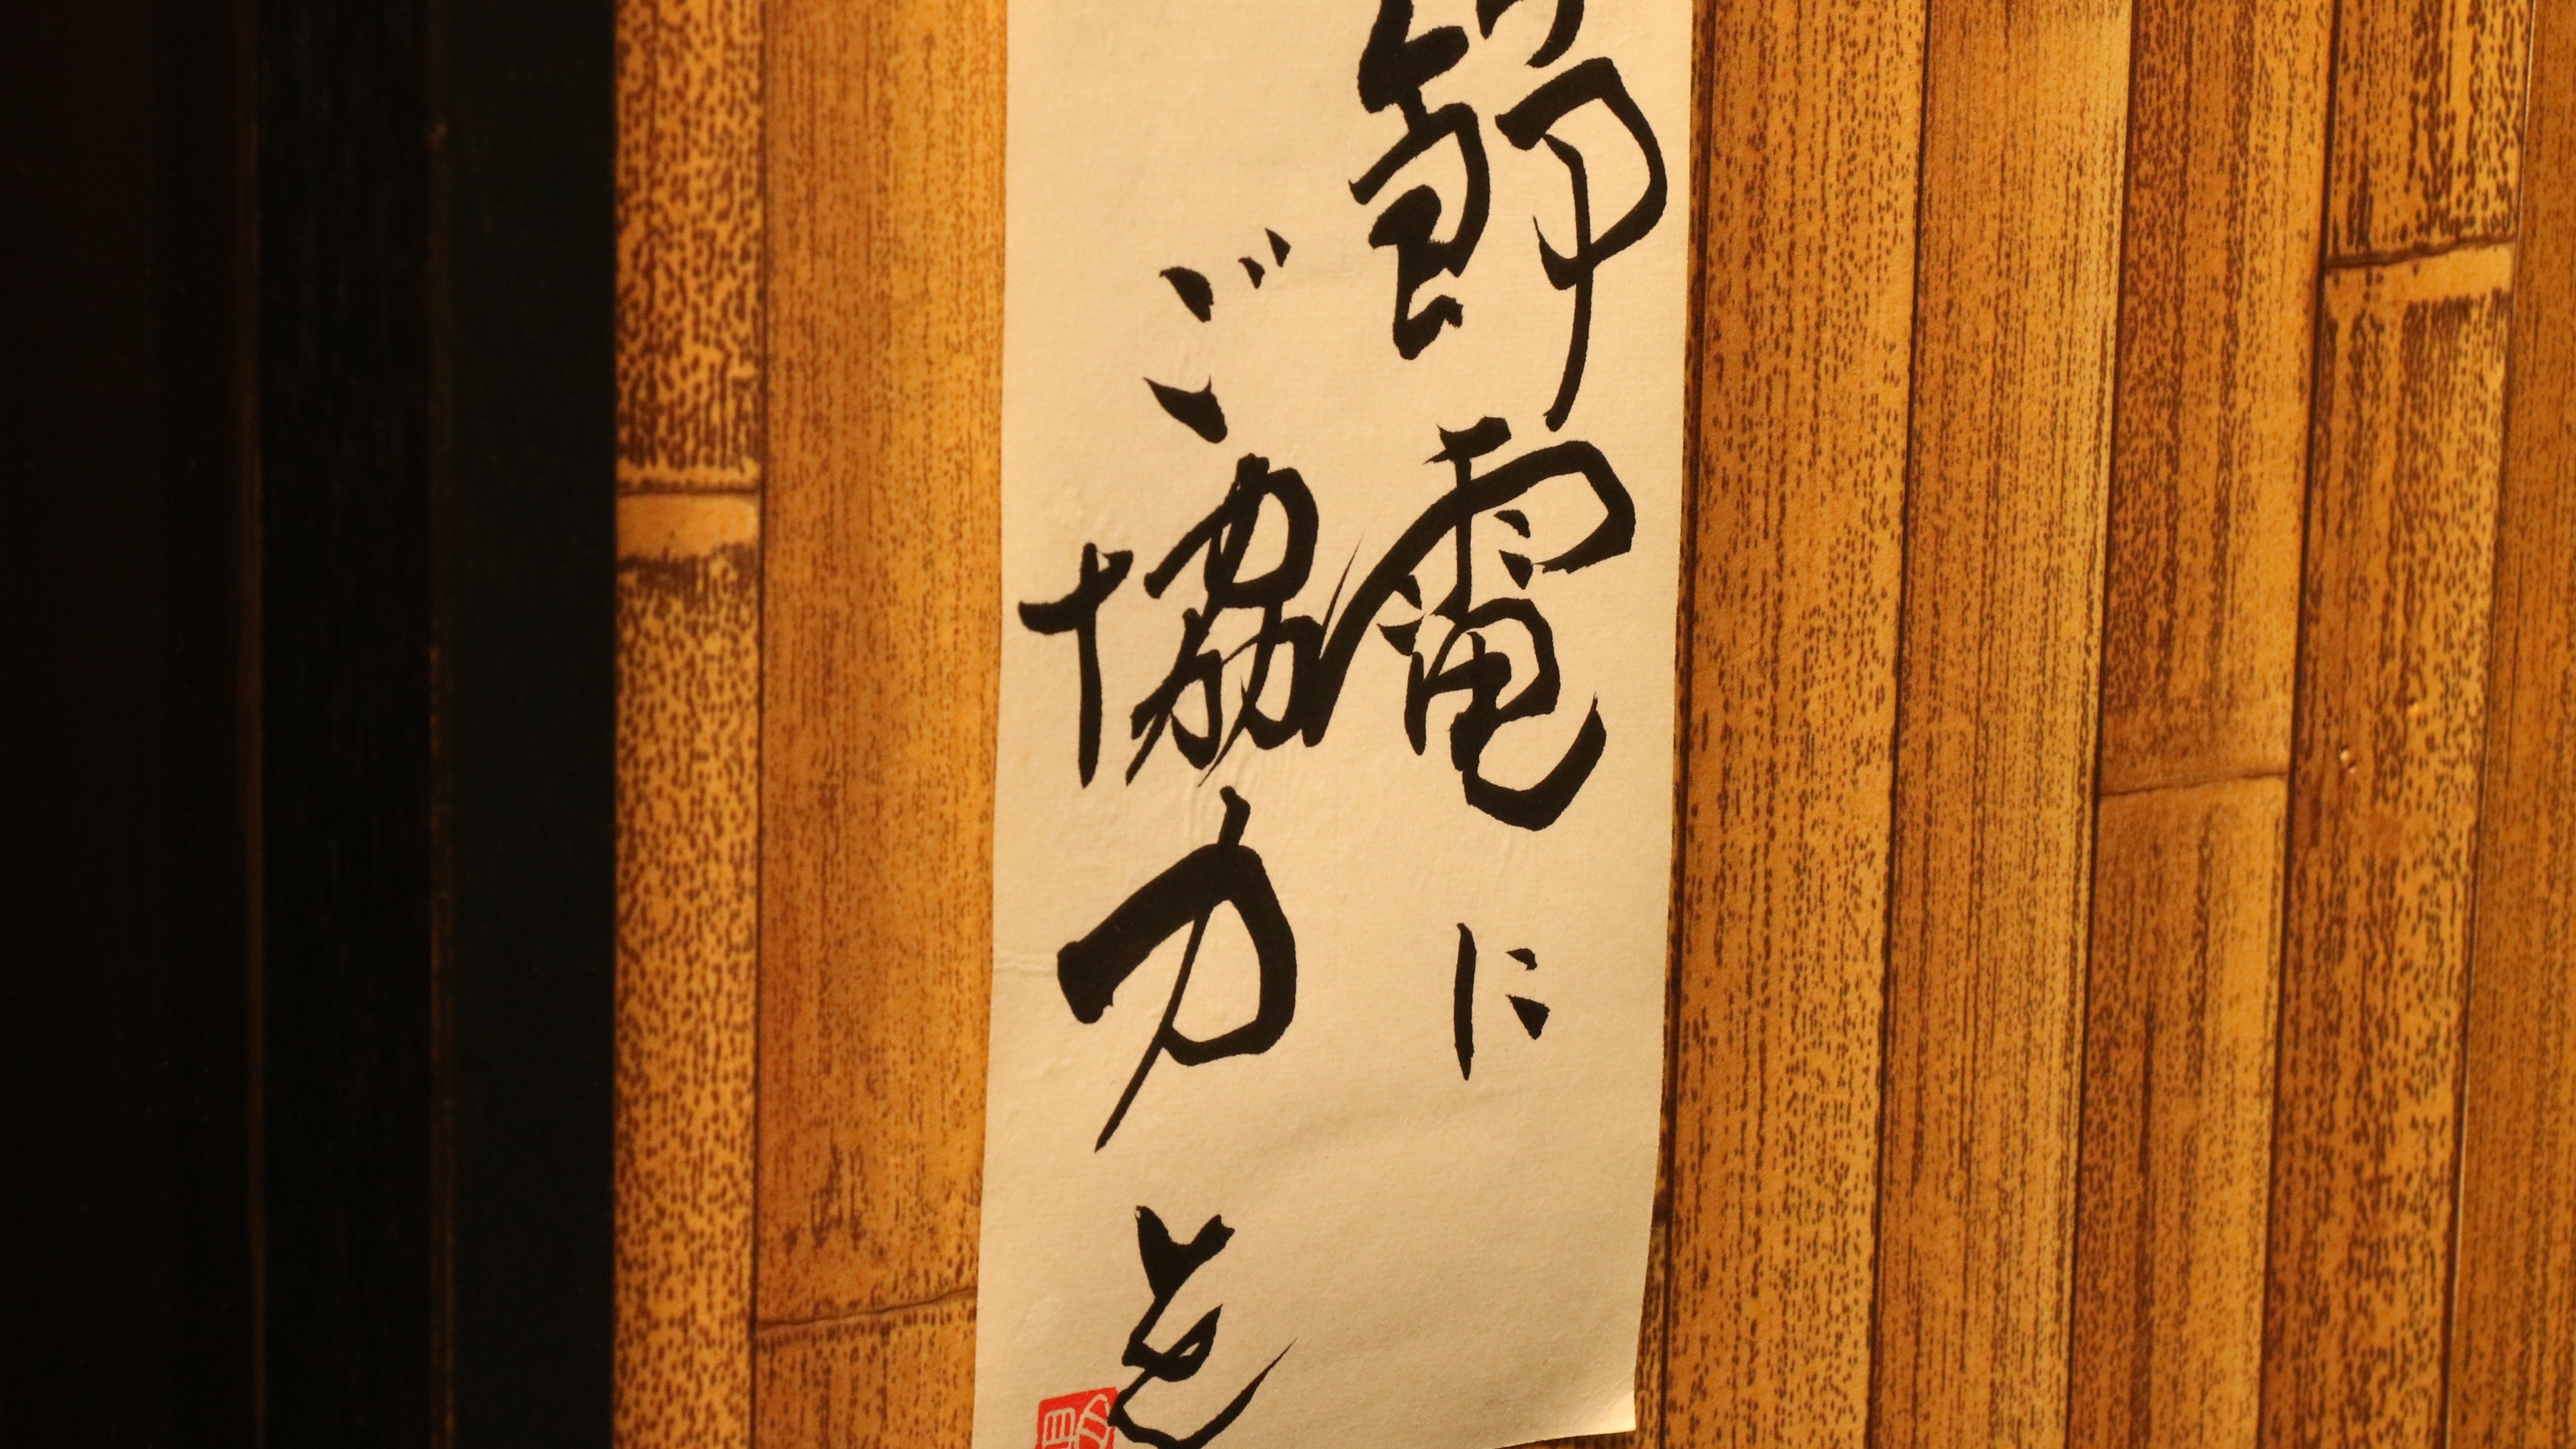 節電に
ご協力を